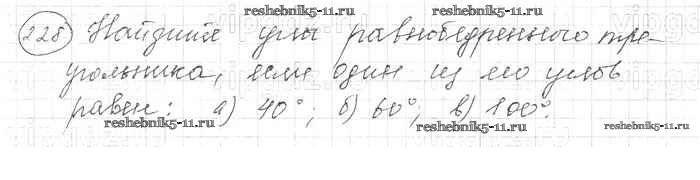 reshebnik5-11.ru reshebnik5-11.ru
228) Найдите углы равнобедренного тре-
угольника, если один из его углов
равен: а) 40°; б) 60°; в) 100°.
reshebnik5-11.ru reshebnik5-11.ru